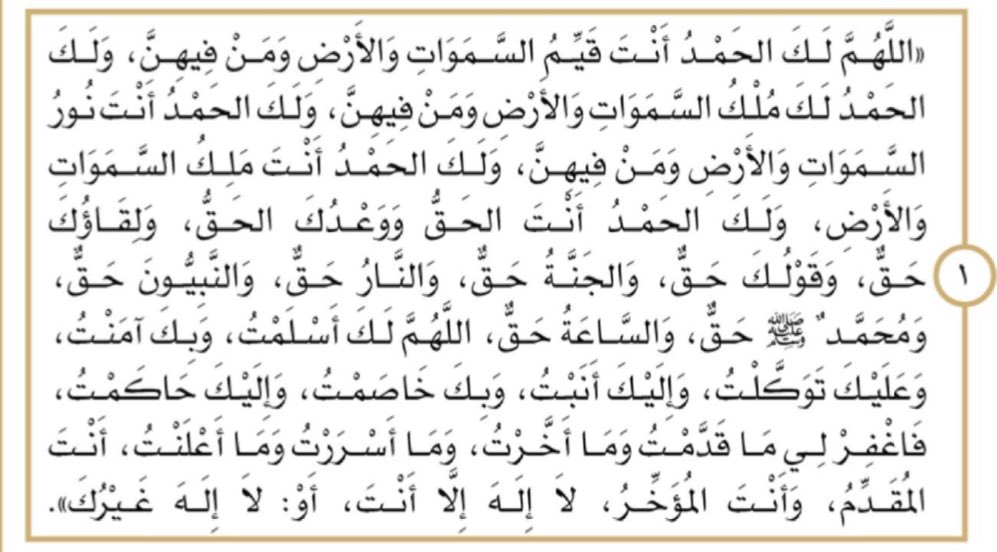 «اللَّهُمَّ لَكَ الحَمْدُ أَنْتَ قَيِّمُ السَّمَوَاتِ وَالأَرْضِ وَمَنْ فِيهِنَّ، وَلَكَ
الحَمْدُ لَكَ مُلْكُ السَّمَوَاتِ وَالأَرْضِ وَمَنْ فِيهِنَّ، وَلَكَ الحَمْدُ أَنْتَ نُورُ
السَّمَوَاتِ وَالأَرْضِ وَمَنْ فِيهِنَّ، وَلَكَ الحَمْدُ أَنْتَ مَلِكُ السَّمَوَاتِ
وَالأَرْضِ، وَلَكَ الحَمْدُ أَنْتَ الحَقُّ وَوَعْدُكَ الحَقُّ، وَلِقَاؤُكَ
حَقٌّ، وَقَوْلُكَ حَقٌّ، وَالجَنَّةُ حَقٌّ، وَالنَّارُ حَقٌّ، وَالنَّبِيُّونَ حَقٌّ،
١
وَمُحَمَّدٌ ﷺ حَقٌّ، وَالسَّاعَةُ حَقٌّ، اللَّهُمَّ لَكَ أَسْلَمْتُ، وَبِكَ آمَنْتُ،
وَعَلَيْكَ تَوَكَّلْتُ، وَإِلَيْكَ أَنَبْتُ، وَبِكَ خَاصَمْتُ، وَإِلَيْكَ حَاكَمْتُ،
فَاغْفِرْ لِي مَا قَدَّمْتُ وَمَا أَخَّرْتُ، وَمَا أَسْرَرْتُ وَمَا أَعْلَنْتُ، أَنْتَ
المُقَدِّمُ، وَأَنْتَ المُؤَخِّرُ، لاَ إِلَهَ إِلَّا أَنْتَ، أَوْ: لاَ إِلَهَ غَيْرُكَ».